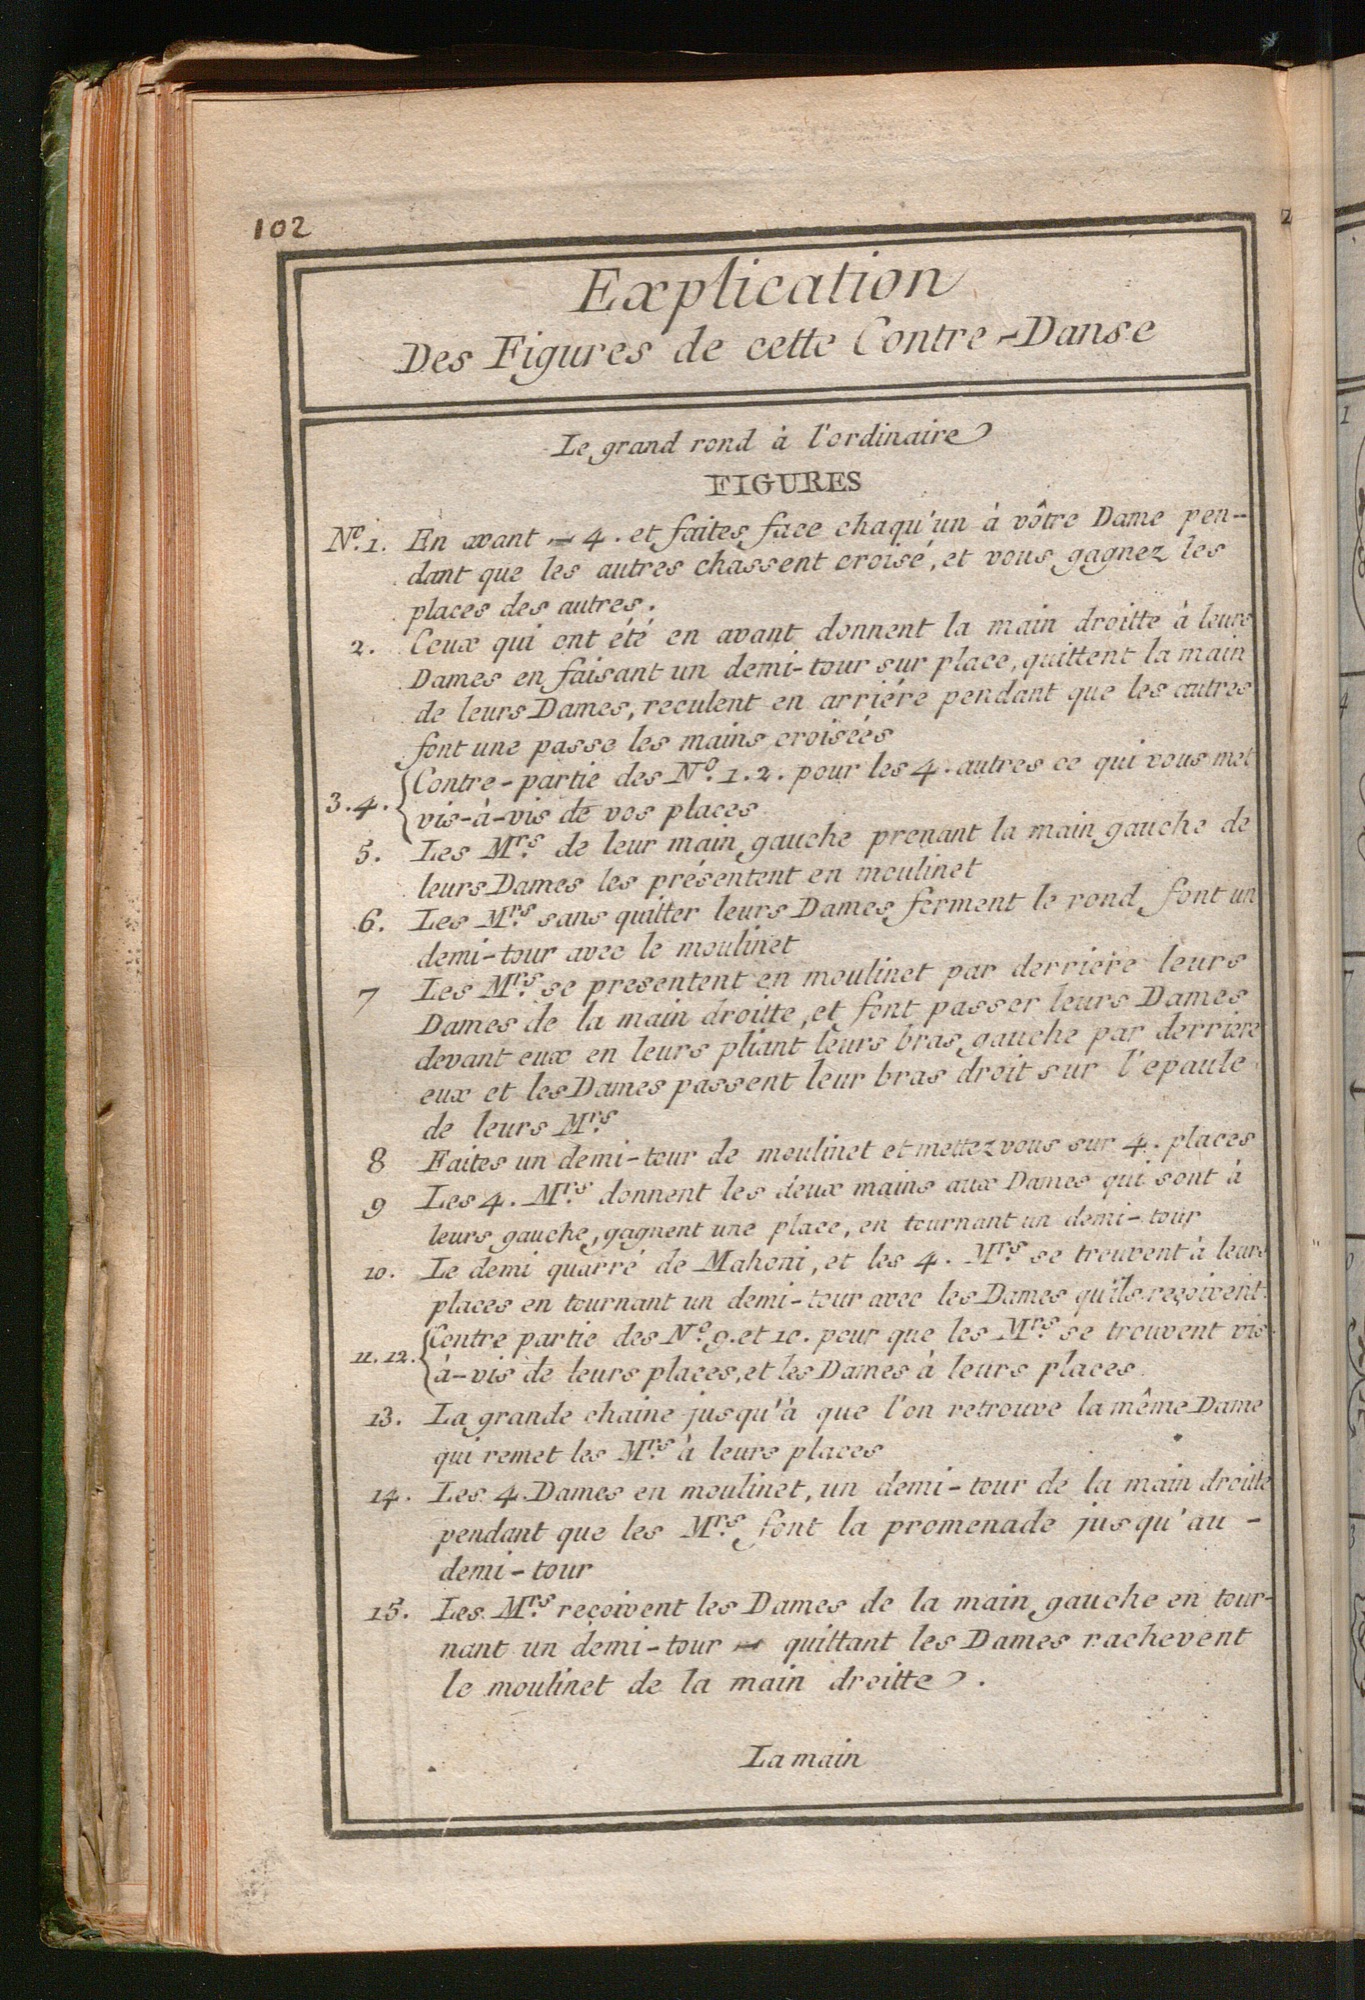 102
Explication
Des Figures de cette Contre-Danse
Le grand rond à l'ordinaire
FIGURES
N.º 1. En avant 4. et faites face chaqu'un à vôtre Dame pen-
dant que les autres chassent croisé, et vous gagnez les
places des autres.
2. Ceux qui ont été en avant donnent la main droitte à leurs
Dames en faisant un demi-tour sur place, quittent la main
de leurs Dames, reculent en arriére pendant que les autres
font une passe les mains croisées
3.4. Contre-partie des N.º 1.2. pour les 4. autres ce qui vous met
vis-à-vis de vos places
5. Les M.rs de leur main gauche prenant la main gauche de
leurs Dames les présentent en moulinet
6. Les M.rs sans quitter leurs Dames forment le rond, font un
demi-tour avec le moulinet
7 Les M.rs se presentent en moulinet par derriere leurs
Dames de la main droitte, et font passer leurs Dames
devant eux en leurs pliant leurs bras gauche par derriere
eux et les Dames passent leur bras droit sur l'epaule
de leurs M.rs
8 Faites un demi-tour de moulinet et mettez vous sur 4. places
9 Les 4. M.rs donnent les deux mains aux Dames qui sont à
leurs gauche, gagnent une place, en tournant un demi-tour
10. Le demi quarré de Mahoni, et les 4. M.rs se trouvent à leurs
places en tournant un demi-tour avec les Dames qu'ils reçoivent.
11.12. Contre partie des N.º 9. et 10. pour que les M.rs se trouvent vis-
à-vis de leurs places, et les Dames à leurs places.
13. La grande chaine jusqu'à que l'on retrouve la même Dame
qui remet les M.rs à leurs places
14. Les 4 Dames en moulinet, un demi-tour de la main droitte
pendant que les M.rs font la promenade jusqu'au -
demi-tour
15. Les M.rs reçoivent les Dames de la main gauche en tour-
nant un demi-tour quittant les Dames rachevent
le moulinet de la main droitte.
La main